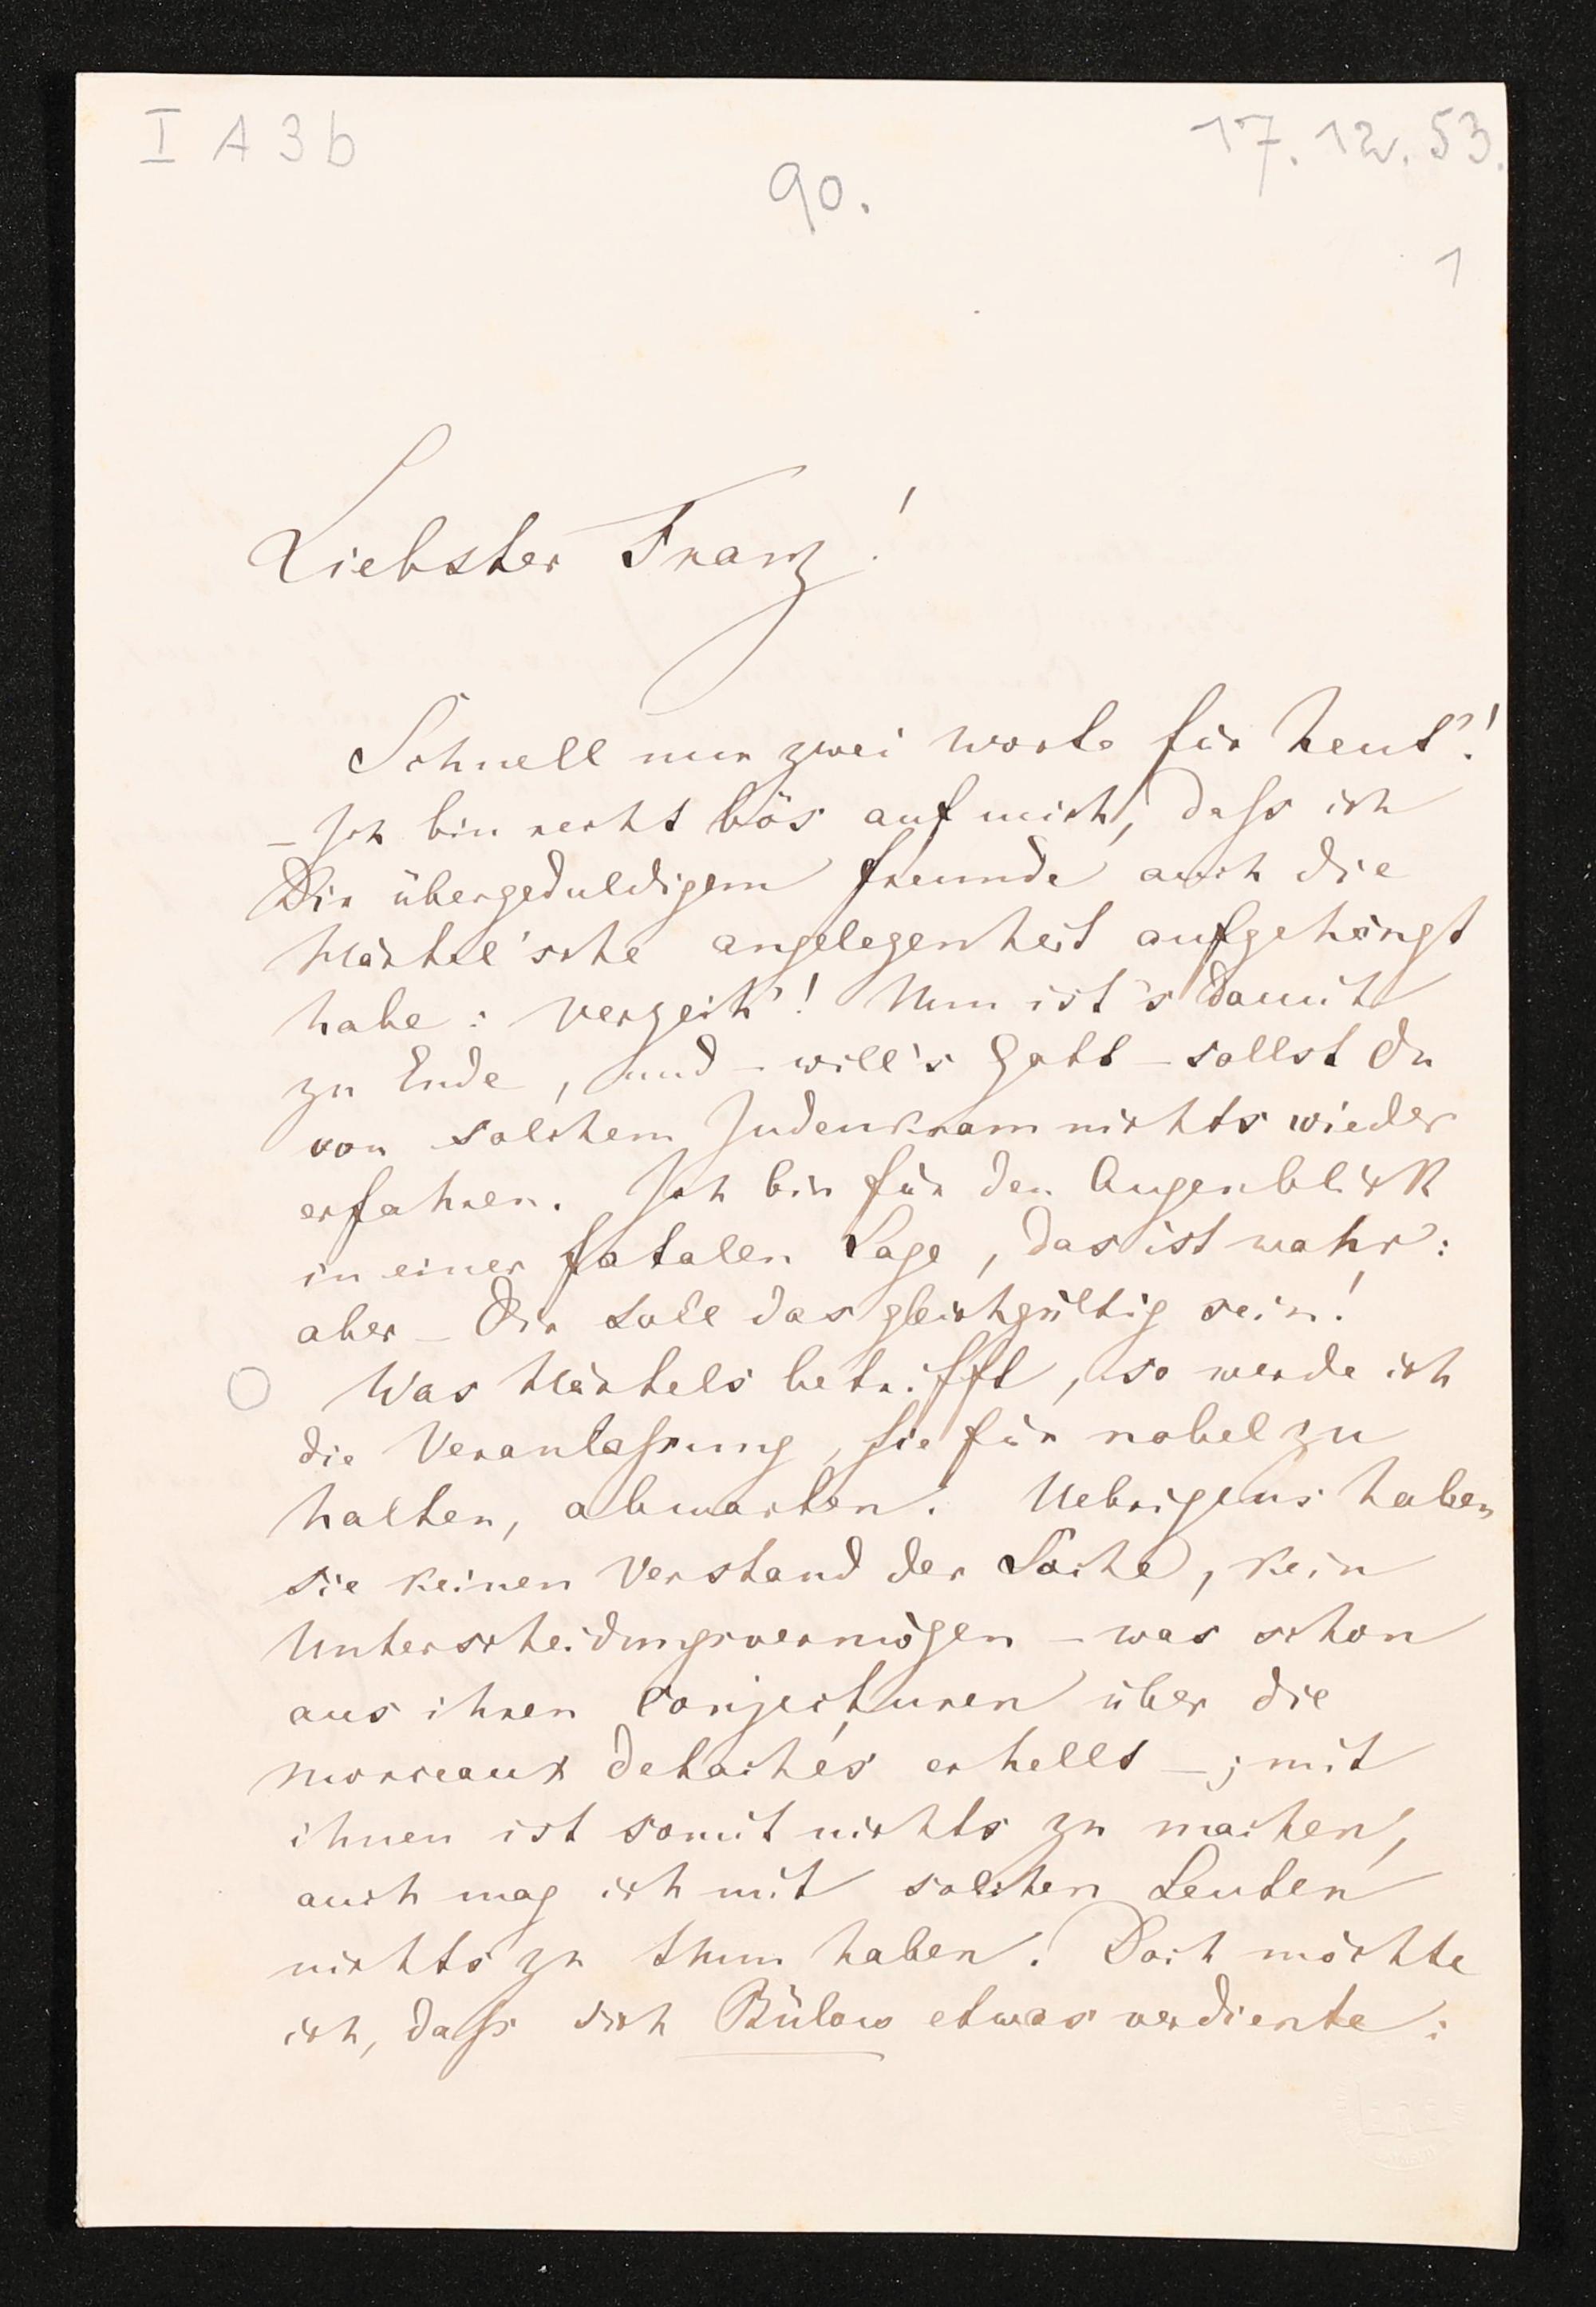 I A 3 b
17. 12. 53.
90.
1
Liebster Franz!
Schnell nur zwei worte für heut'!
– Ich bin recht bös auf mich, daſs ich
Dir übergeduldigem freunde auch die
Härtel'sche angelegenheit aufgehängt
habe: verzeih'! Nun ist's damit
zu Ende, und – will's Gott – sollst Du
von solchem Judenkram nichts wieder
erfahren. Ich bin für den Augenblick
in einer fatalen Lage, das ist wahr:
aber – Dir soll das gleichgültig sein!
Was Härtels betrifft, so werde ich
die Veranlaſsung, sie für nobel zu
halten, abwarten. Uebrigens haben
sie keinen Verstand der Sache, kein
Unterscheidungsvermögen – was schon
aus ihren Conjecturen über die
morceaux detachés erhellt –; mit
ihnen ist somit nichts zu machen,
auch mag ich mit solchen Leuten
nichts zu thun haben. Doch möchte
ich, daſs sich Bülow etwas verdiente: